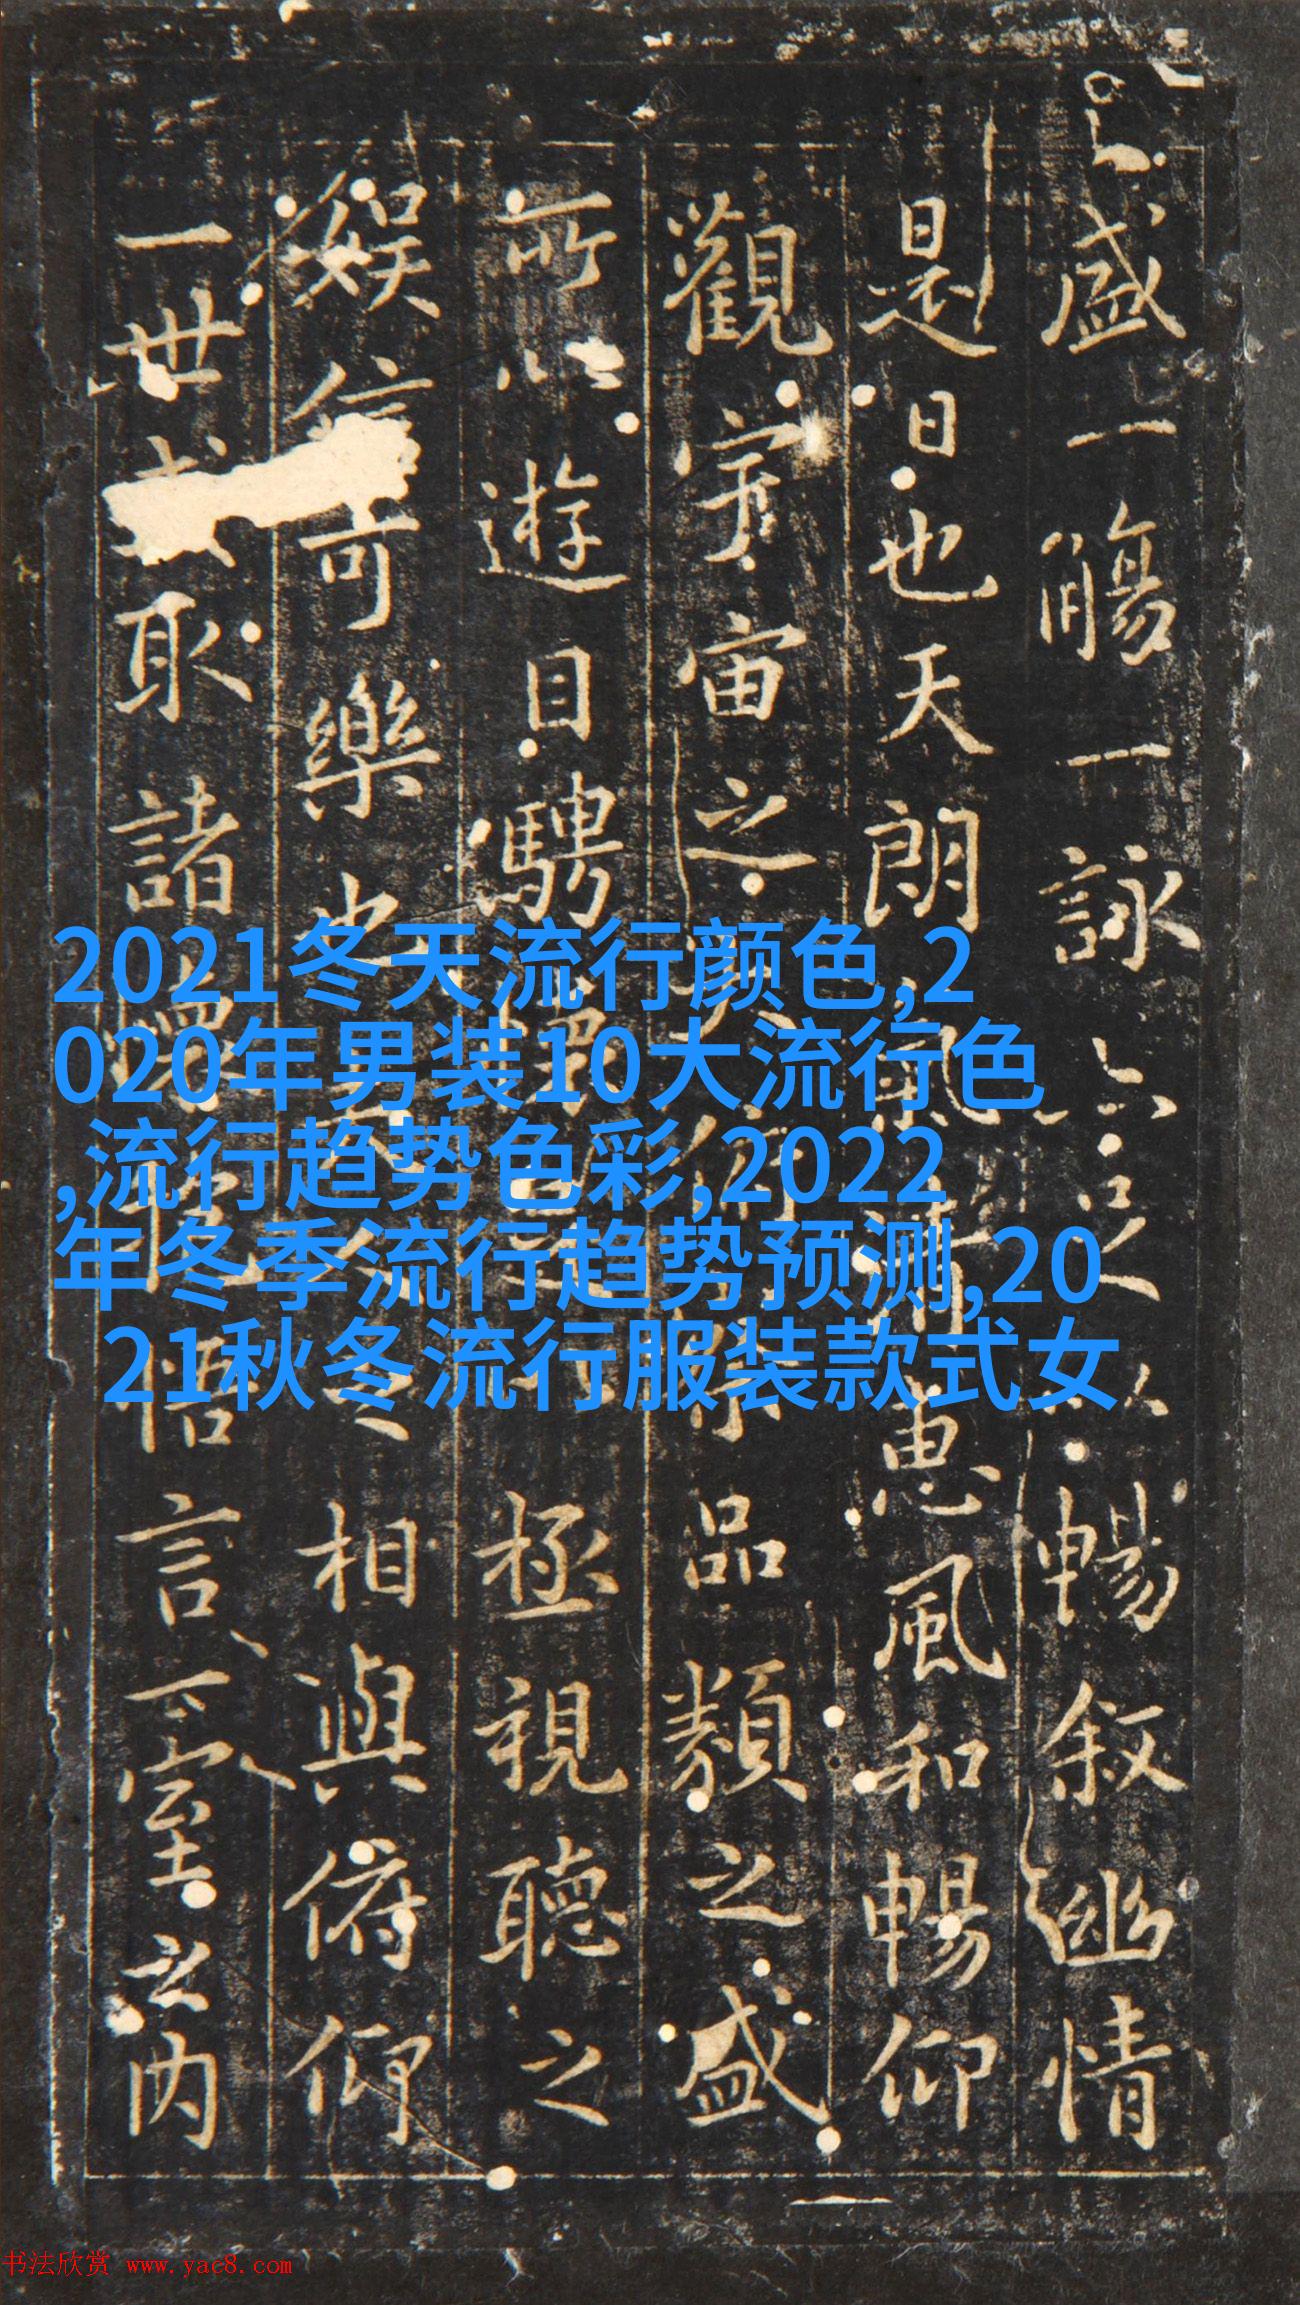 盛一觴一詠足以暢叙幽情
是日也天朗風清惠風和暢仰
觀宇宙之俯品類之盛
所以遊目騁懷極視聽之
娱信可樂也相與俯仰
一世取諸懷悟言一室之内
2021冬天流行颜色,2
020年男装10大流行色
,流行趋势色彩,2022
年冬季流行趋势预测,20
21秋冬流行服装款式女
书法欣赏 www.yac8.com